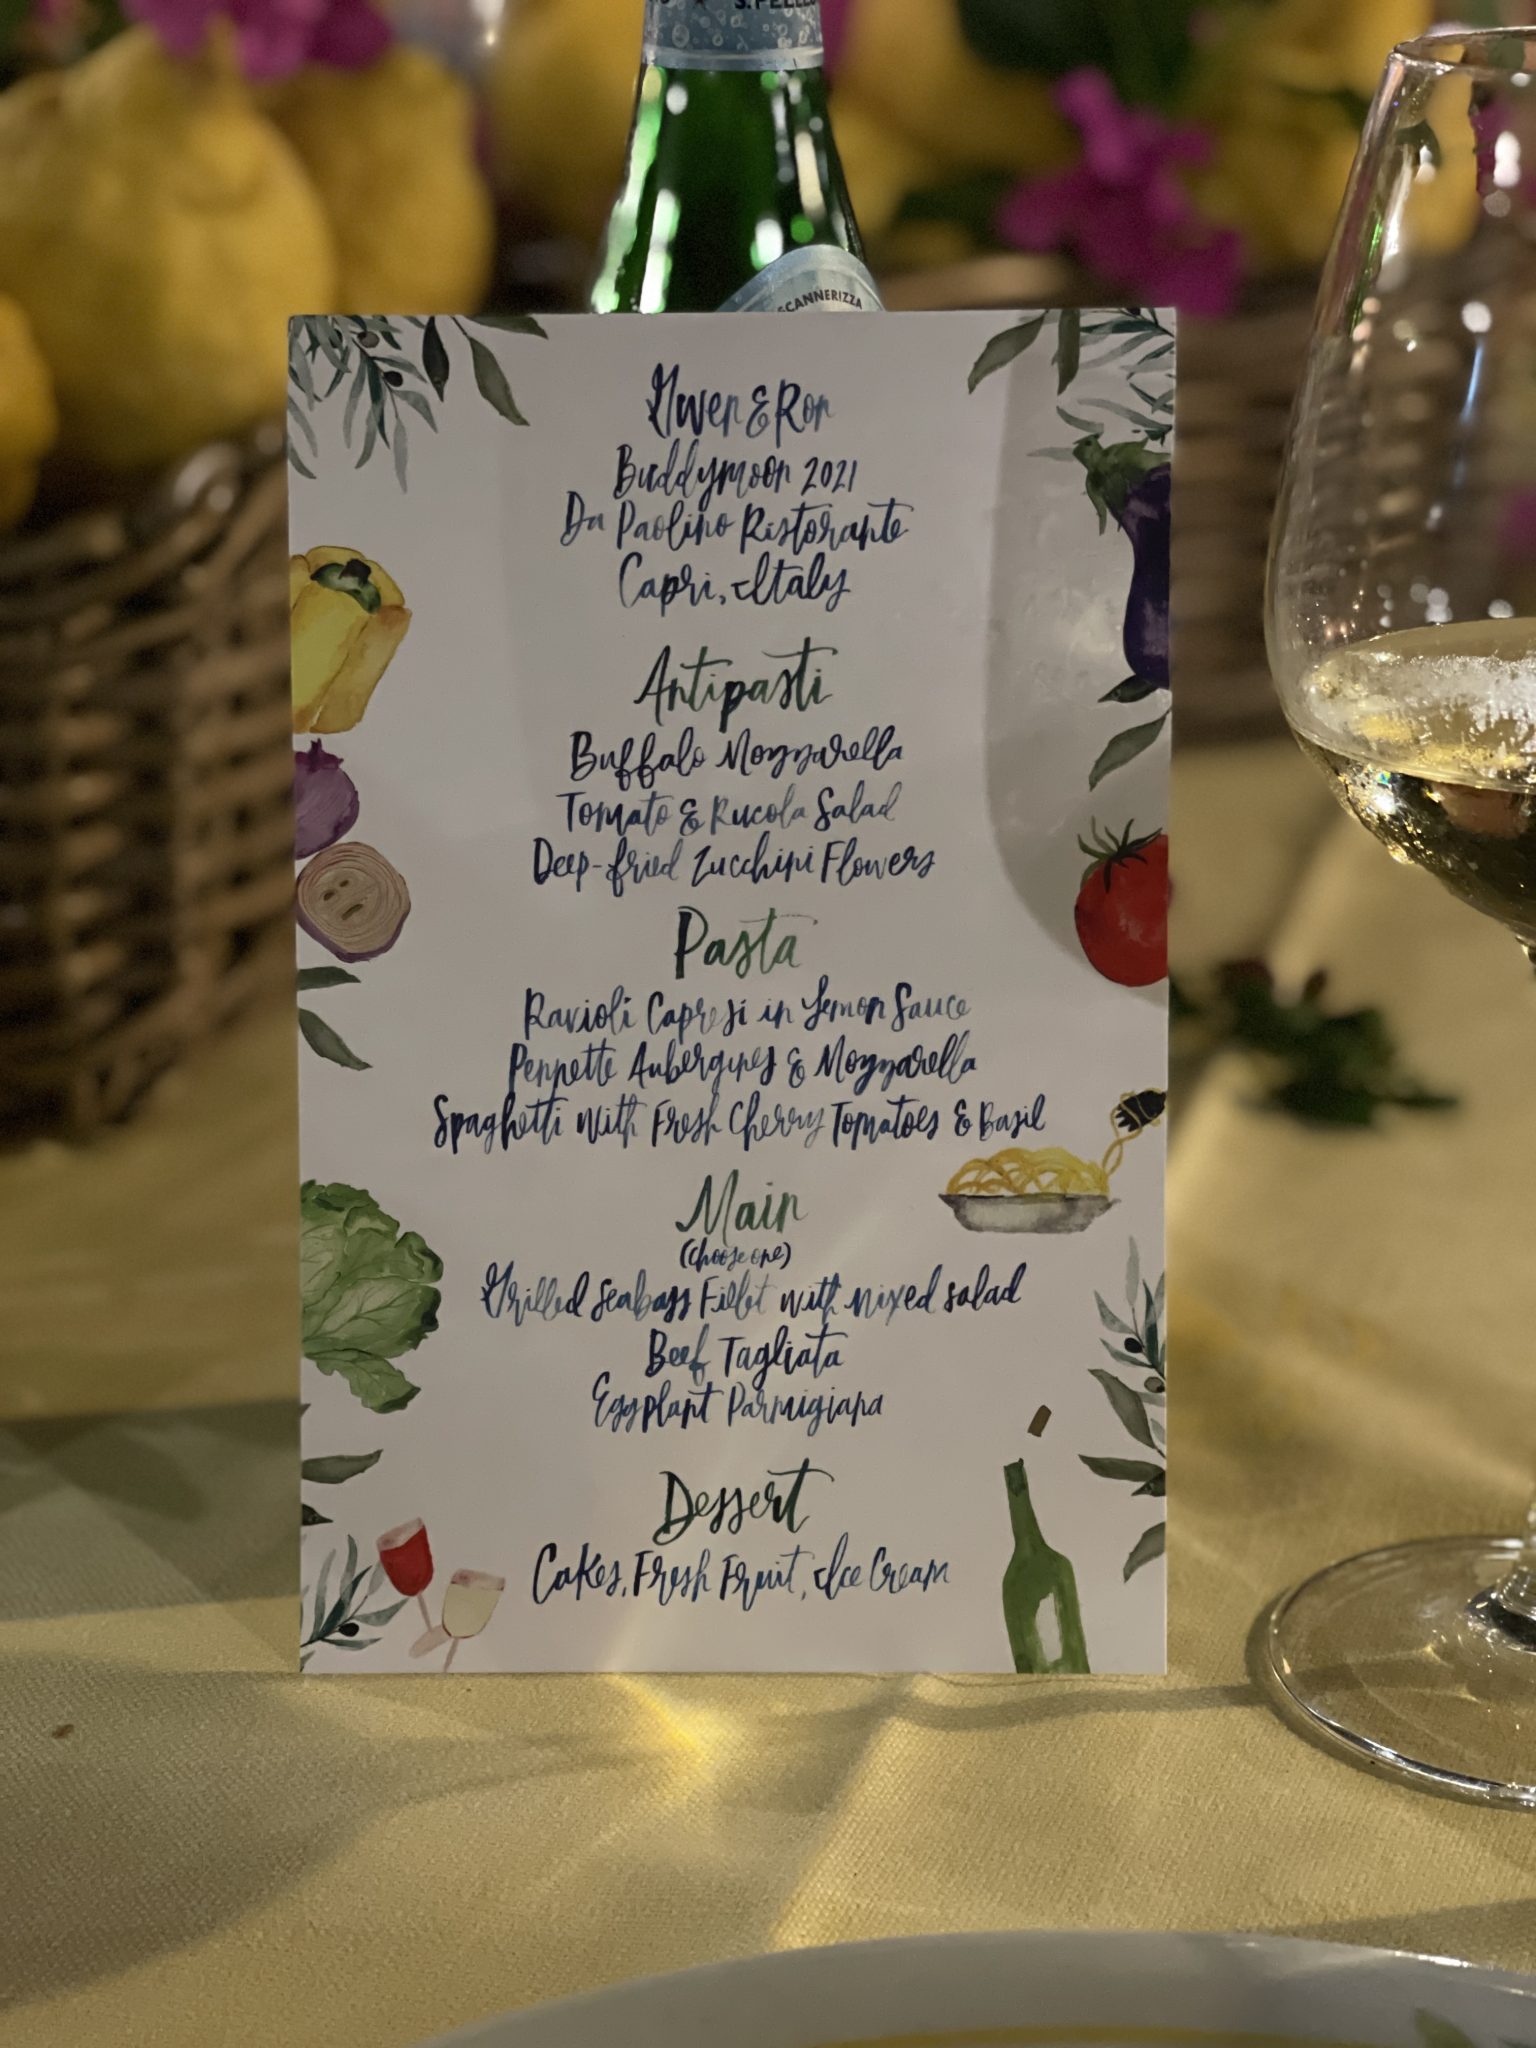 S.PELLE
SCANNERIZZA
Gwen & Ron
Buddymoon 2021
Da Paolino Ristorante
Capri, Italy
Antipasti
Buffalo Mozzarella
Tomato & Rucola Salad
Deep-fried Zucchini Flowers
Pasta
Ravioli Capresi in Lemon Sauce
Pennette Aubergines & Mozzarella
Spaghetti with Fresh Cherry Tomatoes & Basil
Main
(choose one)
Grilled Seabass Fillet with Mixed salad
Beef Tagliata
Eggplant Parmigiana
Dessert
Cakes, Fresh Fruit, Ice Cream